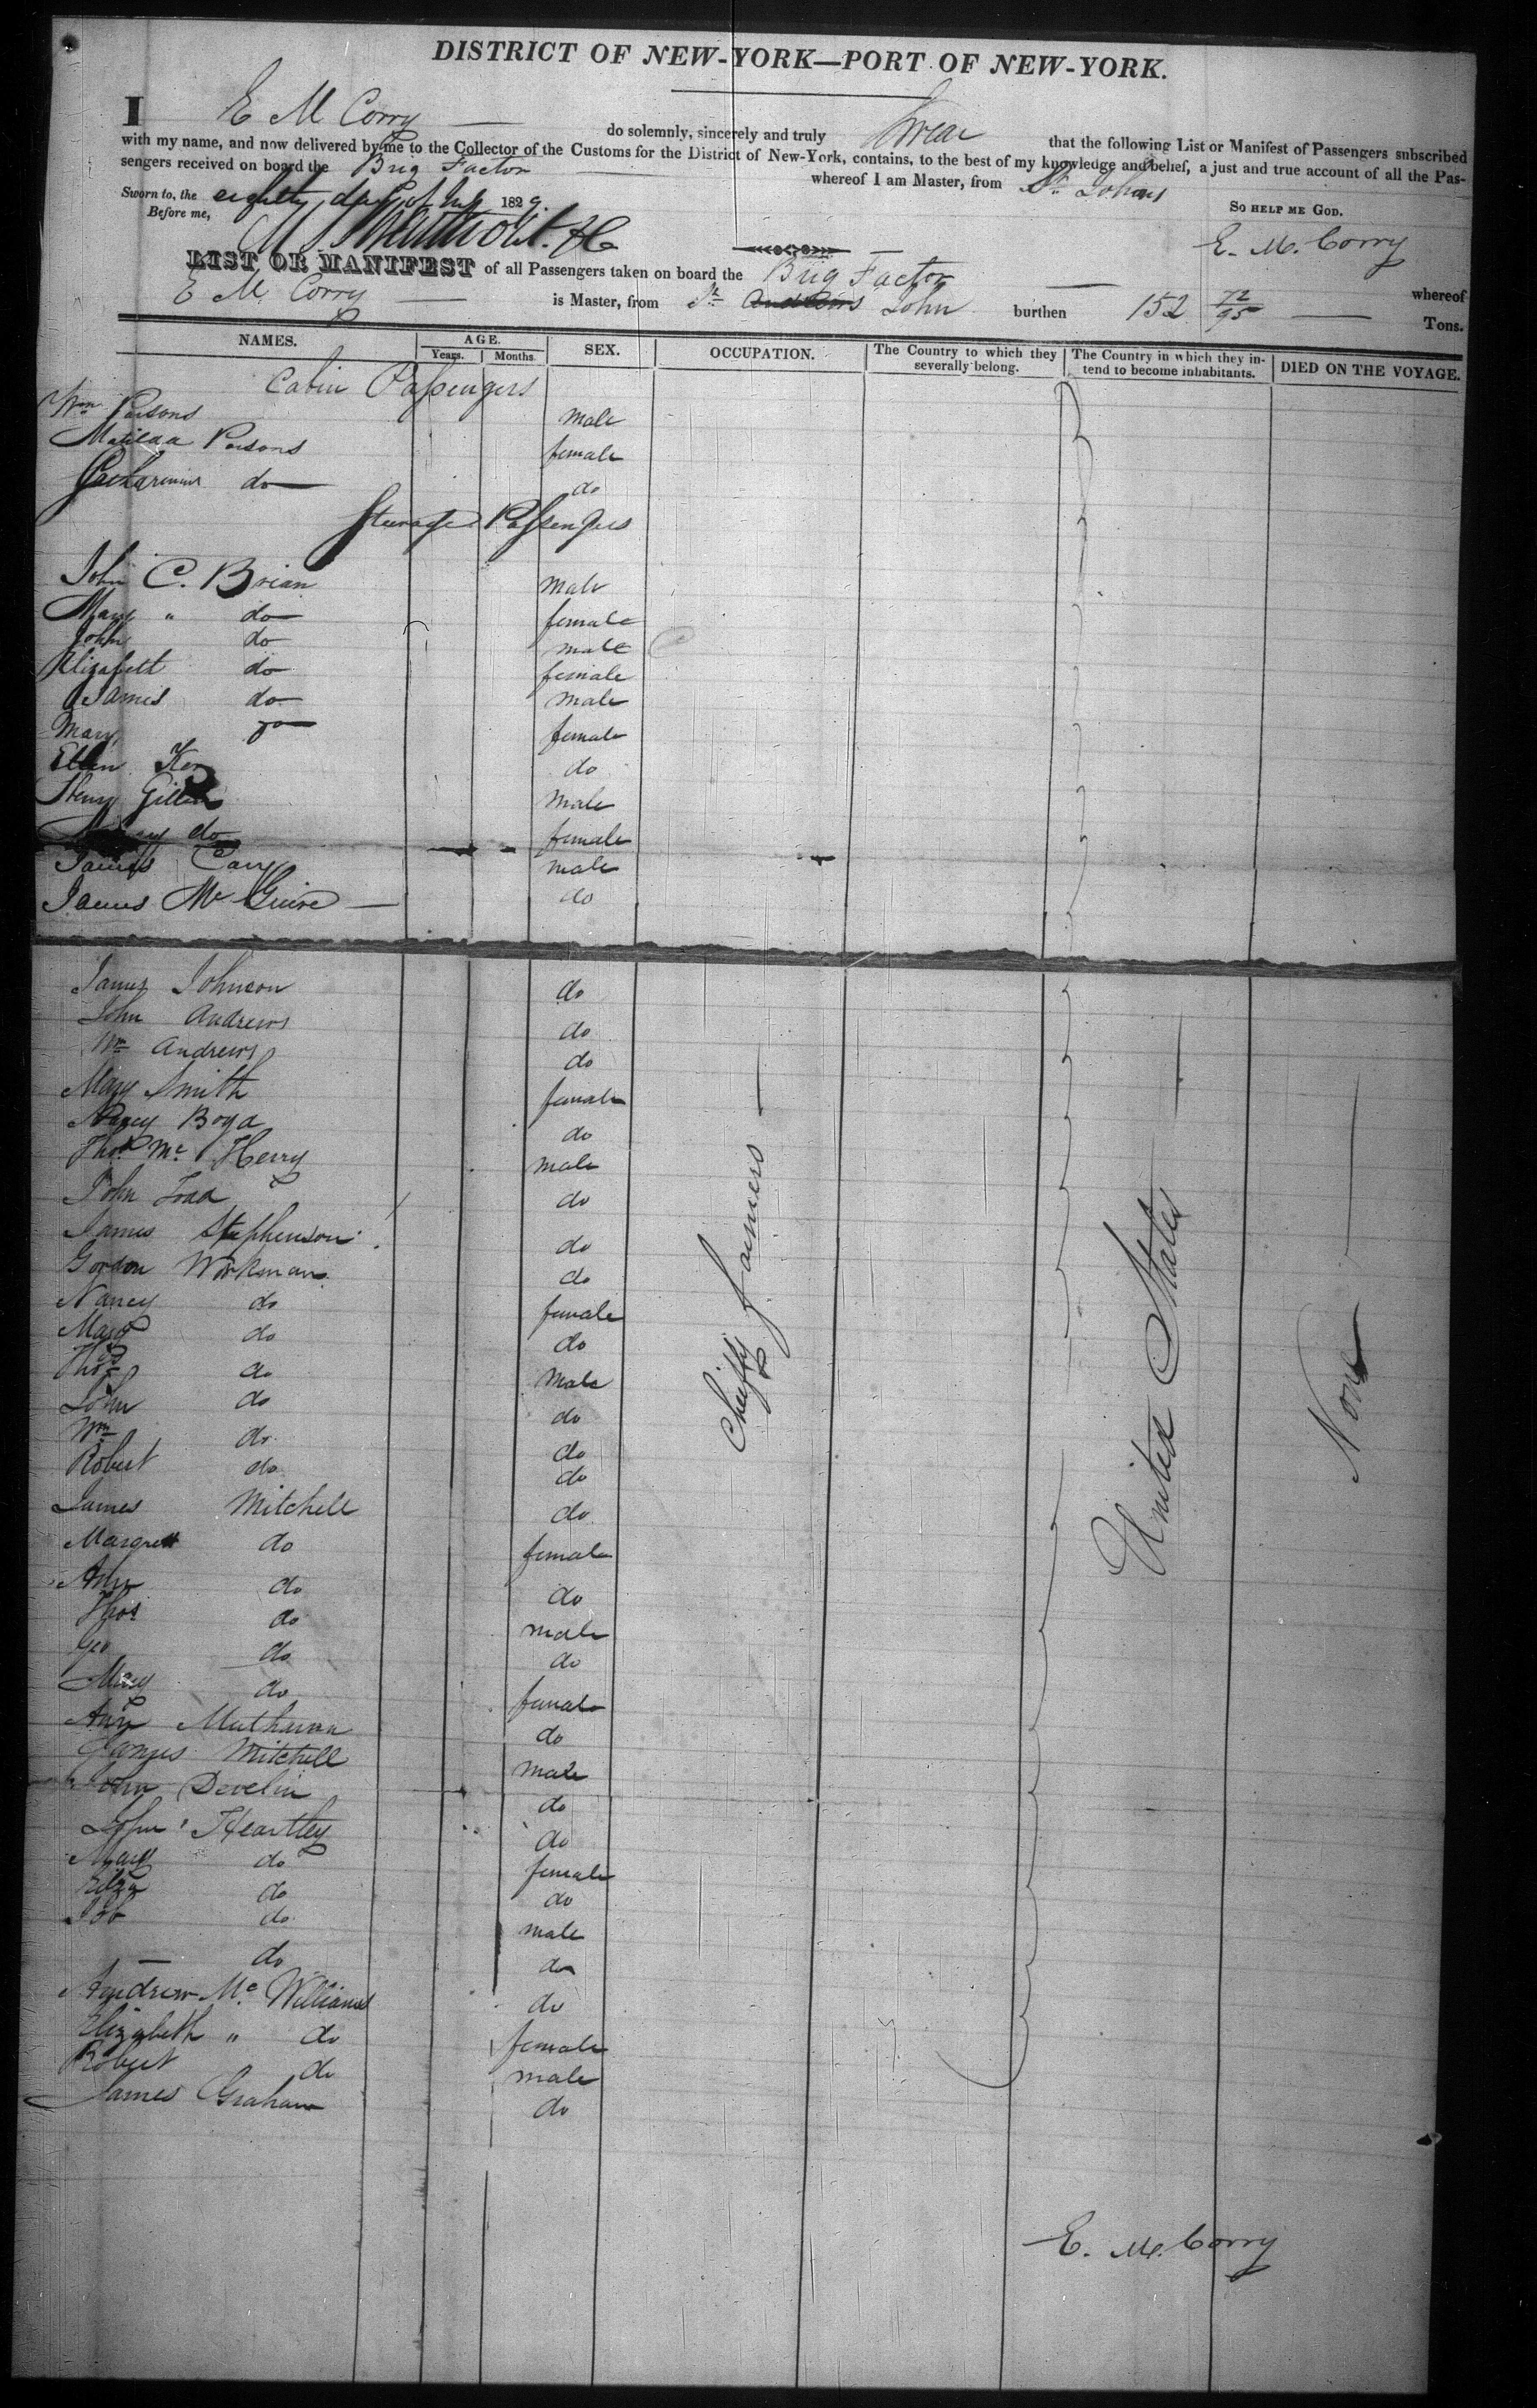 DISTRICT OF NEW-YORK—PORT OF NEW-YORK.
I E M Corry do solemnly, sincerely and truly Swear that the following List or Manifest of Passengers subscribed
with my name, and now delivered by me to the Collector of the Customs for the District of New-York, contains, to the best of my knowledge and belief, a just and true account of all the Pas-
sengers received on board the Brig Factor whereof I am Master, from St Johns
Sworn to, the eighth day of July 1829.
So HELP ME GOD.
Before me,
E. M. Corry
LIST OR MANIFEST of all Passengers taken on board the Brig Factor whereof
E M. Corry is Master, from St John burthen 152 72/95 Tons.
NAMES. AGE. Years. Months. SEX. OCCUPATION. The Country to which they severally belong. The Country in which they intend to become inhabitants. DIED ON THE VOYAGE.
Cabin Passengers
Wm Parsons male
Matilda Parsons female
do do
Steerage Passengers
John C. Brian male
Mary " do female
John do male
Elizabeth do female
James do male
Mary do female
Ellen Ker do
Henry Gillen male
do female
James Cary male
James Mc Guire do
James Johnson do
John Andrews do
Wm Andrews do
Mary Smith female
Nancy Boyd do
Thos Mc Herry male
John Todd do
James Stephenson do
Gordon Workman do
Nancy do female
Mary do do
Thos do male
John do do
Wm do do
Robert do do
James Mitchell do
Margrett do female
Ann do do
Thos do male
Geo do do
Mary do female
Ann do
James Mitchell male
John Develin do
John Heartley do
Mary do female
Eliza do do
Job do male
— do do
Andrew Mc Williams do
Elizabeth " do female
Robert do male
James Graham do
Cheifly farmers
United States
None
E. M. Corry